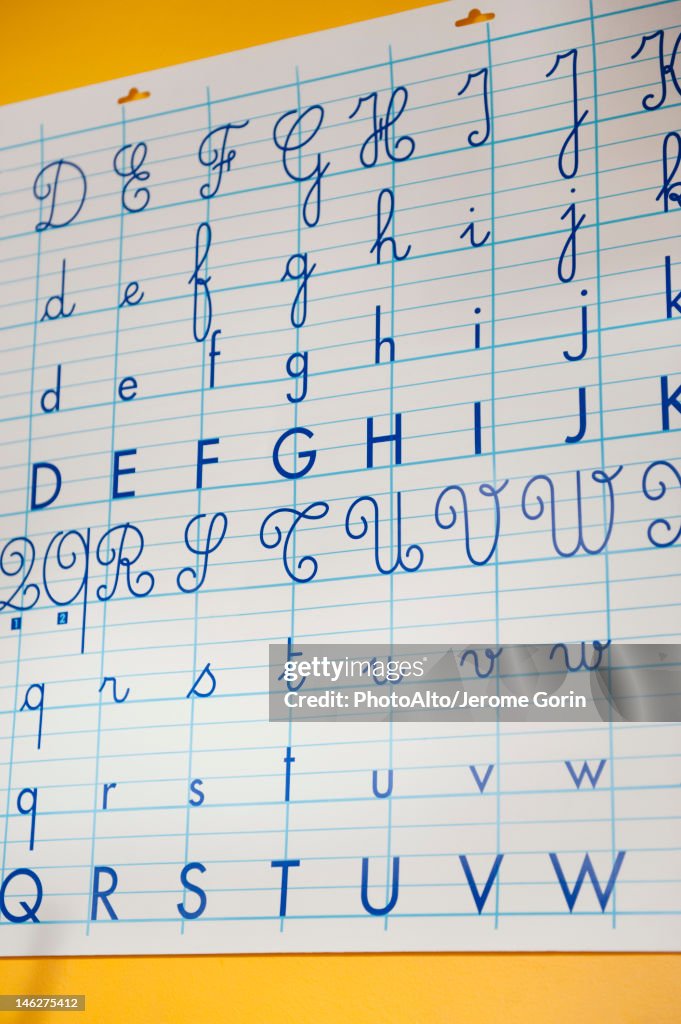 D E F G H I J K
d e f g h i j k
d e f g h i j k
D E F G H I J K
Q Q R S T U V W
1 2
q r s t u v w
gettyimages®
PhotoAlto/Jerome Gorin
q r s t u v w
Q R S T U V W
146275412